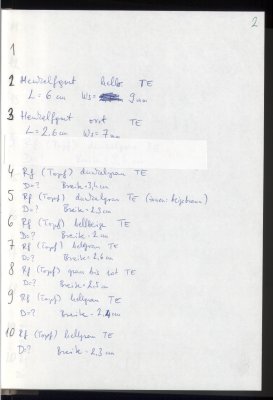 2
1
2 Henkelfgmt helle TE
L = 6 cm Ws = 9 mm
3 Henkelfgmt rot TE
L = 2.6 cm Ws = 7 mm
4 Rf (Topf) dunkelgrau TE
D = ? Breite = 3,4 cm
5 Rf (Topf) dunkelgrau TE (innen:
D = ? Breite = 2.3 cm
6 Rf (Topf) hellbeige TE
D = ? Breite = 2 cm
7 Rf (Topf) hellgrau TE
D = ? Breite = 2,6 cm
8 Rf (Topf) grau bis rot TE
D = ? Breite = 2.5 cm
9 Rf (Topf) hellgrau TE
D = ? Breite = 2.4 cm
10 Rf (Topf) hellgrau TE
D = ? Breite = 2.3 cm